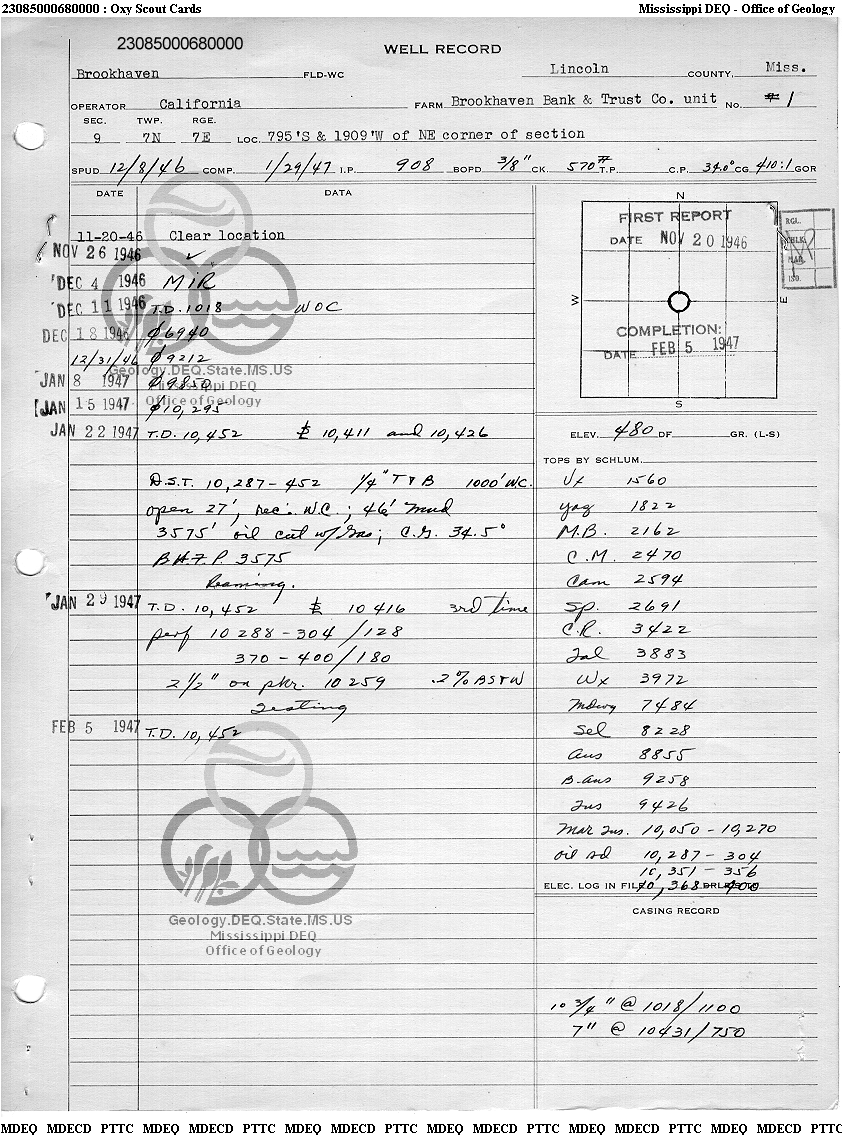 23085000680000 : Oxy Scout Cards Mississippi DEQ - Office of Geology
23085000680000
WELL RECORD
Brookhaven FLD-WC Lincoln COUNTY, Miss.
OPERATOR California FARM Brookhaven Bank & Trust Co. unit No. #1
SEC. TWP. RGE.
9 7N 7E LOC. 795'S & 1909'W of NE corner of section
SPUD 12/8/46 COMP. 1/29/47 I.P. 908 BOPD 3/8" CK. 570# T.P. C.P. 34.0° CG 410:1 GOR
DATE DATA
11-20-46 Clear location
NOV 26 1946 ✓
DEC 4 1946 MIR
DEC 11 1946 T.D. 1018 WOC
DEC 18 1946 Ø 6940
12/31/46 Ø 9212
JAN 8 1947 Ø 9850
JAN 15 1947 Ø 10,295
JAN 22 1947 T.D. 10,452 10,411 and 10,426
D.S.T. 10,287-452 1/4" T & B 1000' WC.
open 27', rec. W.C.; 46' mud
3575' oil cut w/Gas; C.G. 34.5°
B.H.F.P. 3575
Reaming.
JAN 29 1947 T.D. 10,452 10 416 3rd time
perf 10 288-304 /128
370-400/180
2 1/2" on pkr. 10 259 .2% BS&W
Testing
FEB 5 1947 T.D. 10,452
Geology.DEQ.State.MS.US
Mississippi DEQ
Office of Geology
Geology.DEQ.State.MS.US
Mississippi DEQ
Office of Geology
N
FIRST REPORT
DATE NOV 20 1946
W E
COMPLETION:
DATE FEB 5 1947
S
RGL.
CHLK.
MAR.
IND.
ELEV. 480 DF GR. (L-S)
TOPS BY SCHLUM.
Vx 1560
yaz 1822
M.B. 2162
C.M. 2470
Cam 2594
Sp. 2691
C.R. 3422
Tal 3883
Wx 3972
Mdwy 7484
Sel 8228
Aus 8855
B-Aus 9258
Tus 9426
Mar Tus. 10,050-10,270
oil sd 10,287-304
10,351-356
ELEC. LOG IN FILE 10,368-400
CASING RECORD
10 3/4" @ 1018/1100
7" @ 10431/750
MDEQ MDECD PTTC MDEQ MDECD PTTC MDEQ MDECD PTTC MDEQ MDECD PTTC MDEQ MDECD PTTC MDEQ MDECD PTTC